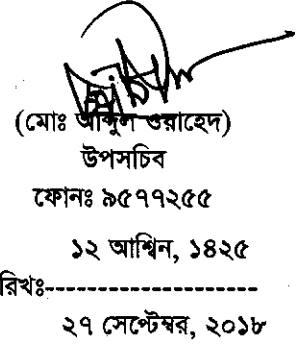 (মোঃ আব্দুল ওয়াহেদ)
উপসচিব
ফোনঃ ৯৫৭৭২৫৫
১২ আশ্বিন, ১৪২৫
রিখঃ--------------------
২৭ সেপ্টেম্বর, ২০১৮